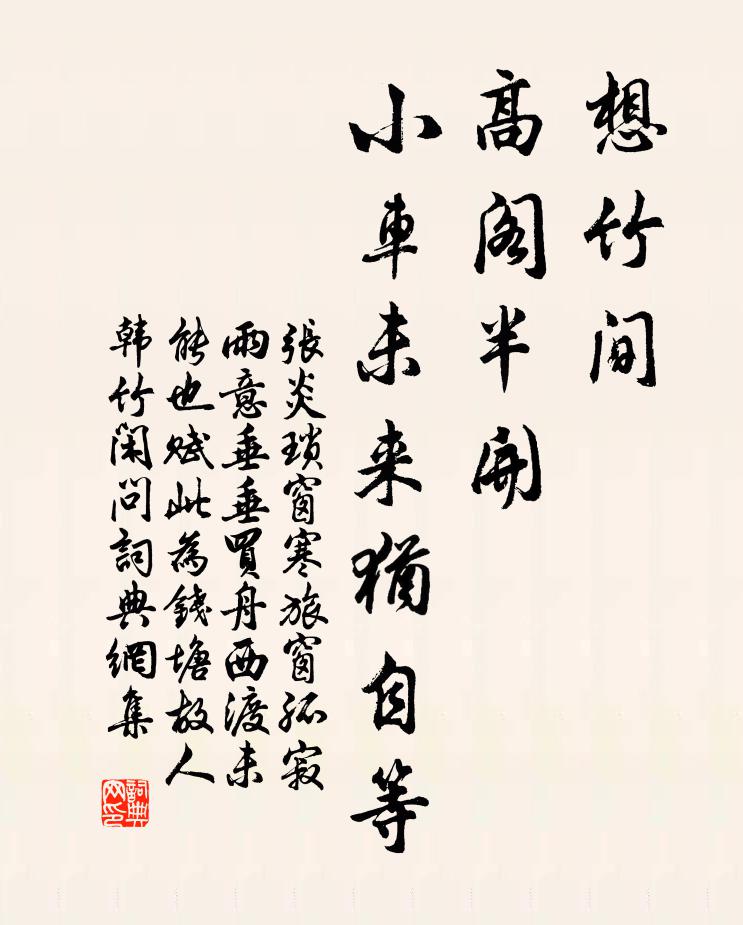 想竹间
高阁半開
小車未来猶自等
張炎瑣窗寒旅窗孤寂
雨意垂垂買舟西渡未
能也赋此為錢塘故人
韩竹閑問詞典網集
詞典網印